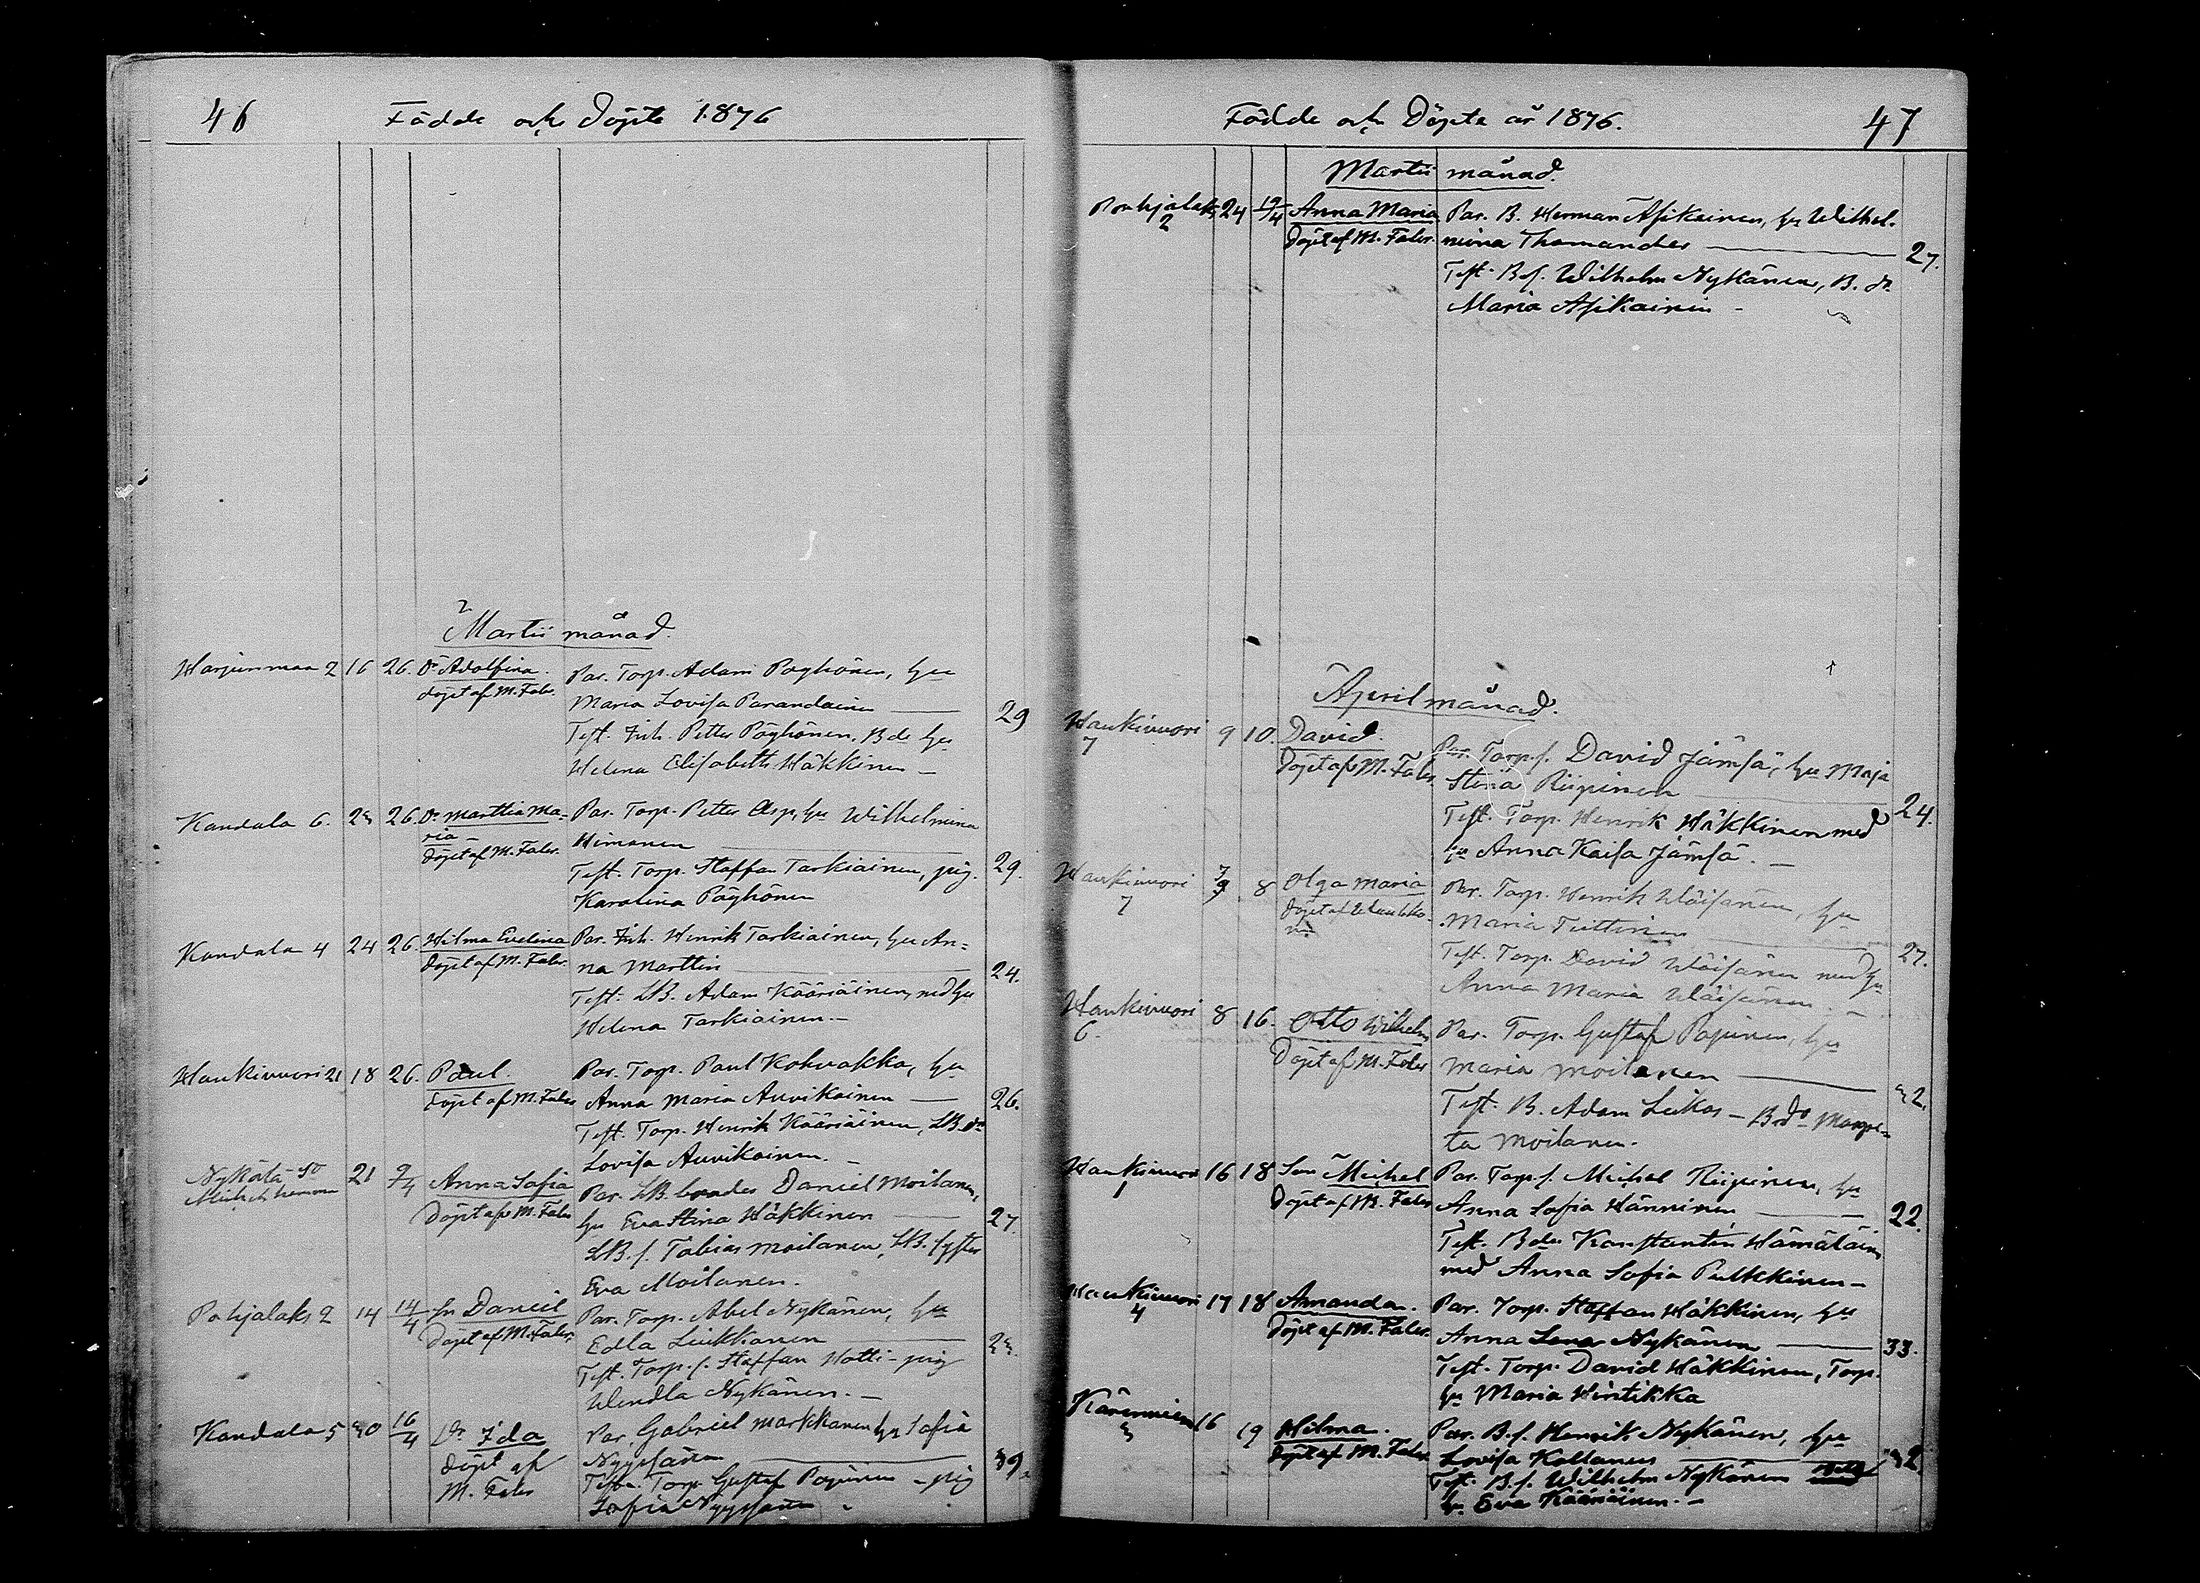 46 Födde och Döpte 1876
Martii månad.
Harjunmaa 2 16 26. Dr Adolfina. Par. Torp. Adam Pöyhönen, hu
döpt af M. Faler. Maria Lovisa Parandainen 29
Test. Inh. Petter Pöyhönen, Bde hu
Helena Elisabeth Häkkinen –
Kandala 6. 23 26. Dr Marttia Ma- Par. Torp. Petter Asp, hu Wilhelmina
ria Himanen 29.
döpt af M. Faler. Test. Torp. Staffan Tarkiainen, pig.
Karolina Pöyhönen
Kandala 4 24 26. Hilma Evelina Par. Inh. Henrik Tarkiainen, hu An-
döpt af M. Faler. na Marttin 24.
Test. LB. Adam Kääriäinen, med hu
Helena Tarkiainen. –
Haukivuori 21 18 26. Paul. Par. Torp. Paul Kokvakka, hu
döpt af M. Faler Anna Maria Auvikainen 26.
Test. Torp. Henrik Kääriäinen, LB. dr
Lovisa Auvikainen. –
Nykälä 50 21 9/4 Anna Sofia Par. LB. broder Daniel Moilanen,
döpt af M. Faler hu Eva Stina Häkkinen 27.
LB. s. Tobias Moilanen, LB. syster
Eva Moilanen.
Pohjalaks 2 14 14/4 sn Daniel Par. Torp. Abel Nykänen, hu
döpt af M. Faler. Edla Liukkonen 23.
Test. Torp. s. Staffan Hotti – pig
Wendla Nykänen. –
Kandala 5 30 16/4 Dr Ida Par Gabriel Markkanen hu Sofia
döpt af Nyyssönen 39.
M. Faler Test. Torp Gustaf Popinen – pig
Sofia Nyyssönen
Födde och Döpte år 1876. 47
Martii månad.
Pohjalaks 24 19/4 Anna Maria Par. B. Herman Asikainen, hu Wilhel-
2 döpt af M. Faler. mina Thomander 27.
Test. B s. Wilhelm Nykänen, B. dr
Maria Asikainen –
April månad.
Haukivuori 9 10. David. Par. Torp s. David Jämsä, hu Maja
7 döpt af M. Faler. Stina Riipinen 24.
Test. Torp. Henrik Häkkinen med
hu Anna Kaisa Jämsä. –
Haukivuori 8 Olga Maria Par. Torp. Henrik Wäisänen, hu
7 döpt af Maria Tuttinen 27.
Test. Torp. David Wäisänen med hu
Anna Maria Wäisänen
Haukivuori 8 16. Otto Wilhelm Par. Torp. Gustaf Popinen, hu
6. döpt af M. Faler Maria Moilanen 32.
Test. B. Adam Liikas – B dr Margre-
ta Moilanen.
Haukivuori 16 18 Son Michel Par. Torp s. Michel Riipinen, hu
1 döpt af M. Faler Anna Sofia Hänninen 22.
Test. B de Konstantin Hämäläinen
med Anna Sofia Pulkkinen –
Haukivuori 17 18 Amanda. Par. Torp. Staffan Häkkinen, hu
4 döpt af M. Faler. Anna Lena Nykänen 33.
Test. Torp. David Häkkinen, Torp.
hu Maria Hintikka
16 19 Hilma. Par. B. s. Henrik Nykänen, hu
3 döpt af M. Faler. Lovisa Kollanen 32.
Test. B. s. Wilhelm Nykänen
hu Eva Kääriäinen. –